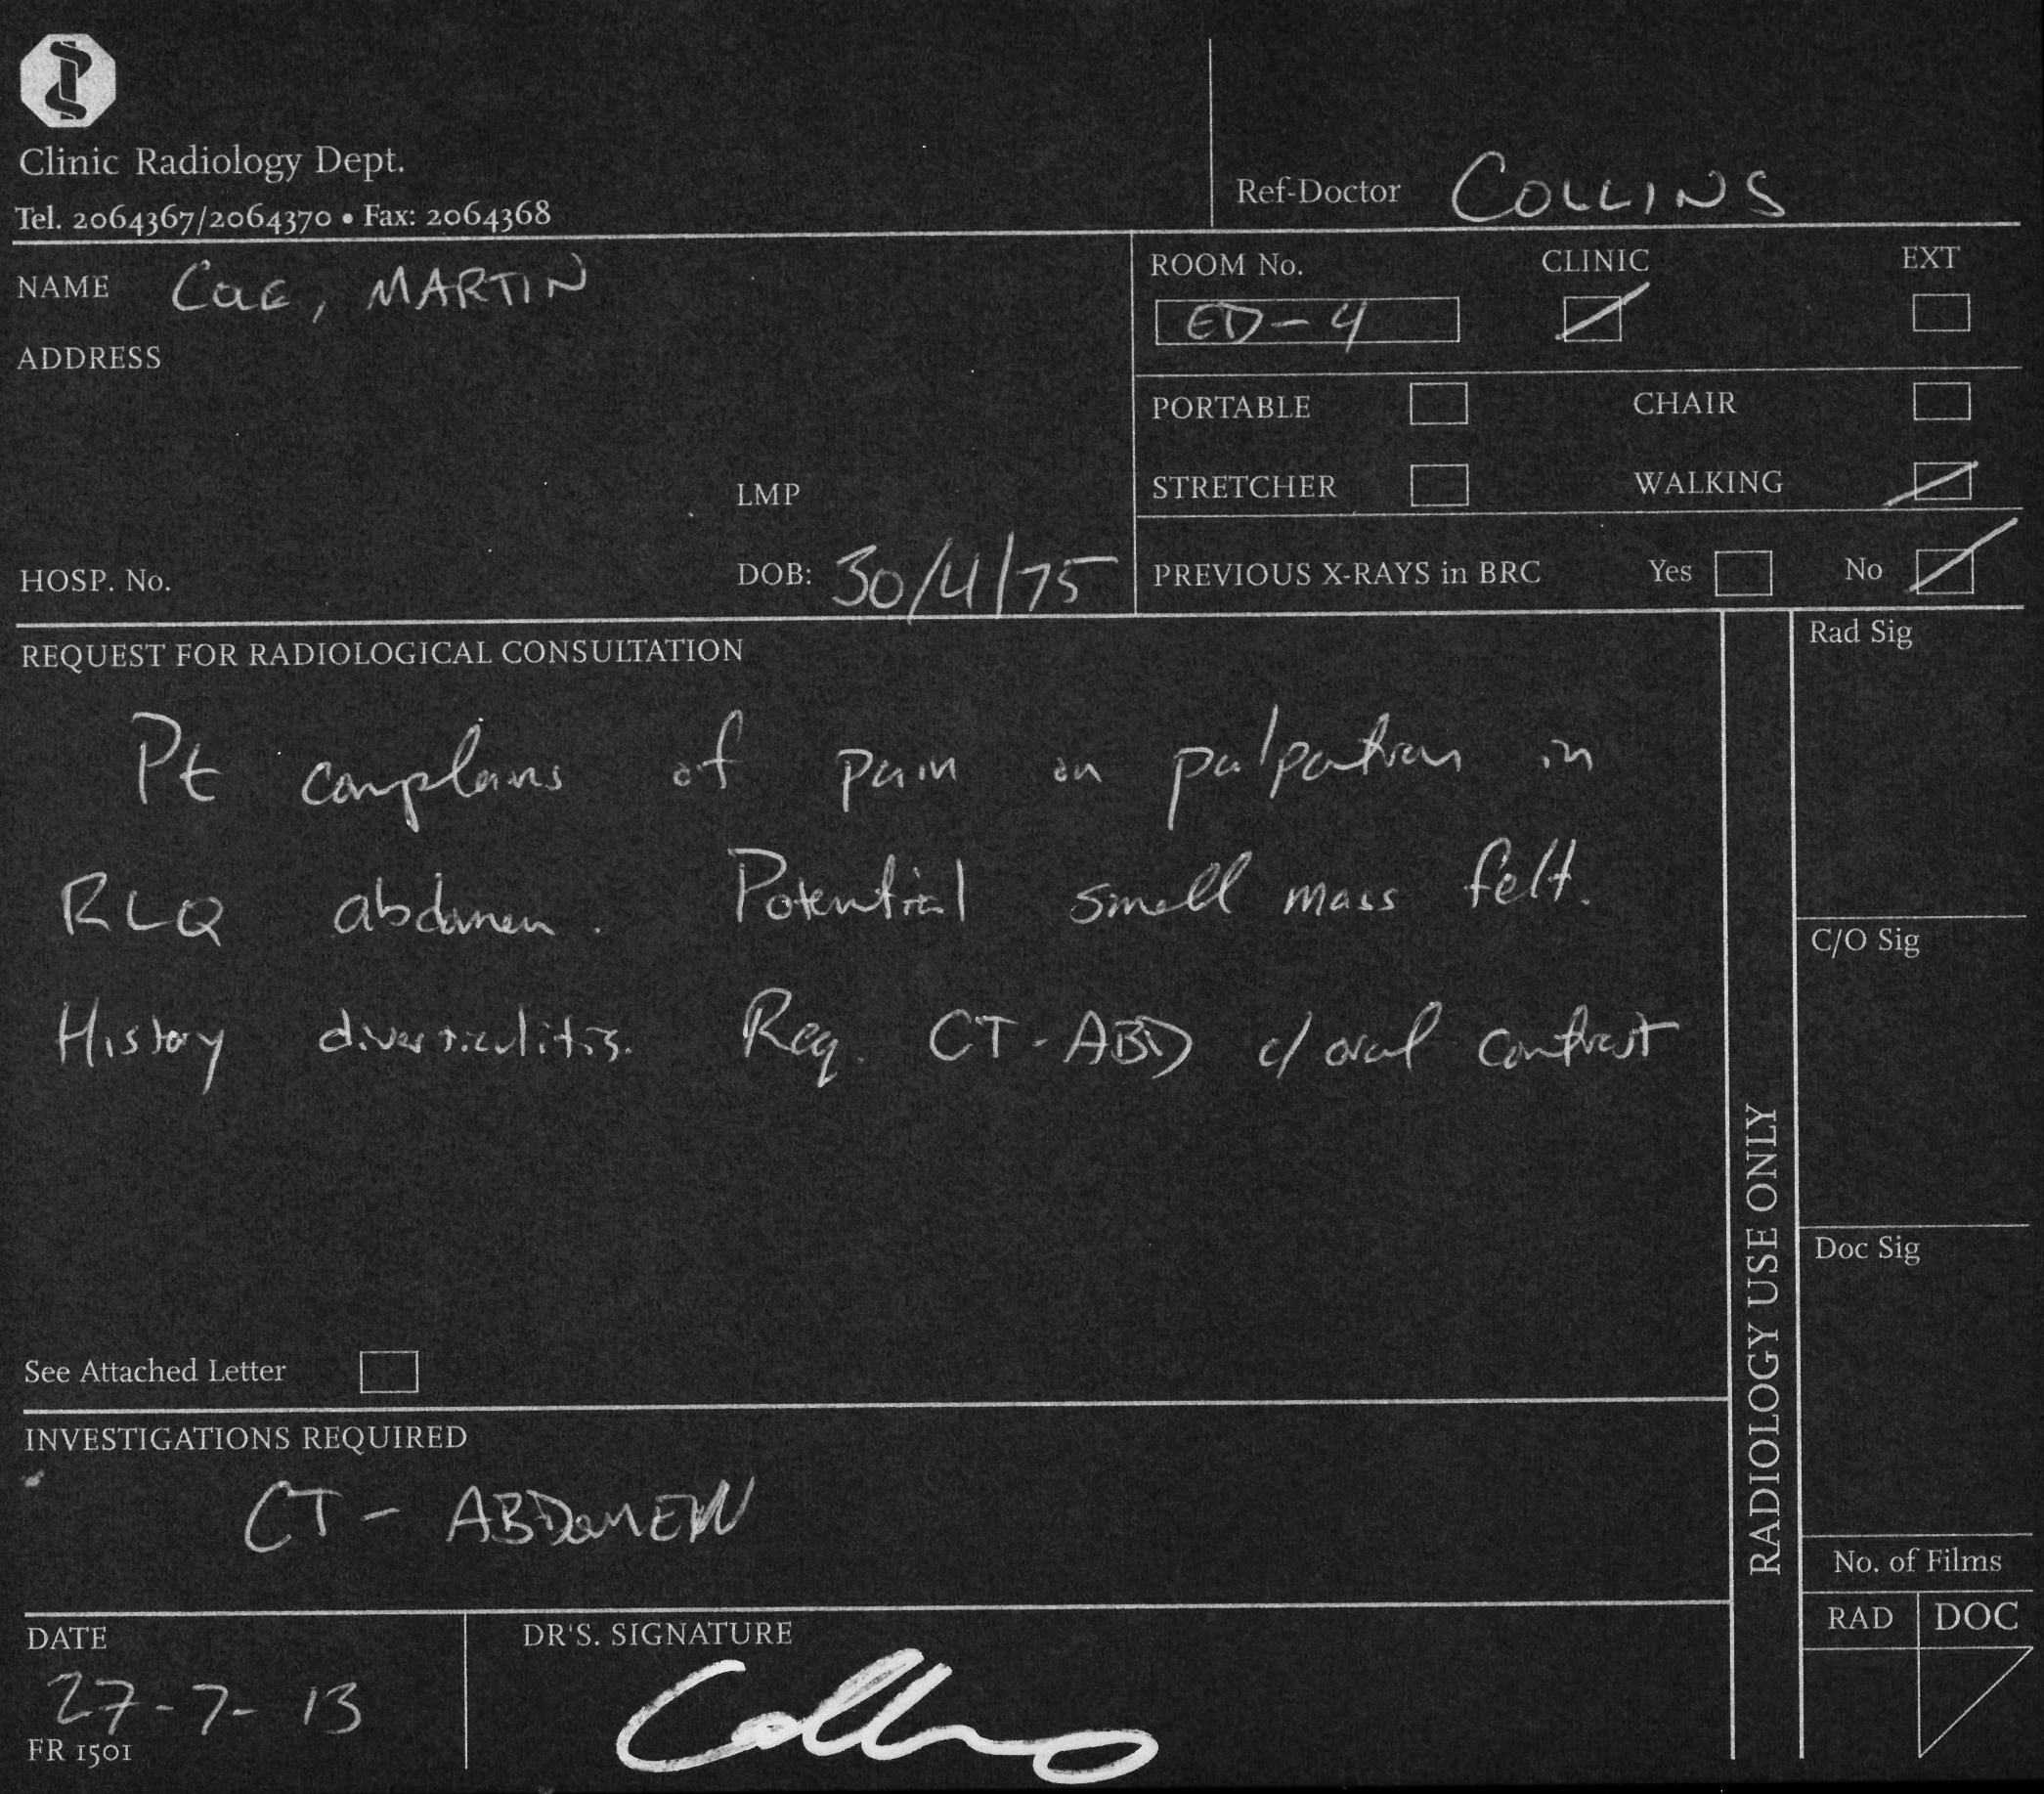 Clinic Radiology Dept.
Tel. 2064367/2064370 • Fax: 2064368
Ref-Doctor COLLINS
NAME COLE, MARTIN
ADDRESS
LMP
HOSP. No.
DOB: 30/4/75
ROOM No. CLINIC EXT
ED-4
PORTABLE CHAIR
STRETCHER WALKING
PREVIOUS X-RAYS in BRC Yes No
REQUEST FOR RADIOLOGICAL CONSULTATION
Pt complains of pain on palpation in
RLQ abdomen. Potential small mass felt.
History diverticulitis. Req. CT-ABD c/ oral contrast
See Attached Letter
INVESTIGATIONS REQUIRED
CT- ABDOMEN
DATE
27-7-13
FR 1501
DR'S. SIGNATURE
Collins
RADIOLOGY USE ONLY
Rad Sig
C/O Sig
Doc Sig
No. of Films
RAD DOC